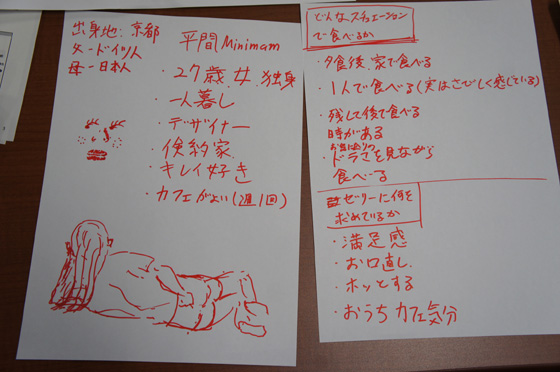 出身地:京都
父-ドイツ人
母-日本人
平間Minimam
・27歳、女、独身
・一人暮し
・デザイナー
・倹約家
・キレイ好き
・カフェがよい(週1回)
どんなスチュエーション
で食べるか
・夕食後、家で食べる
・1人で食べる(実はさびしく感じている)
・残して後で食べる
時がある
・ドラマを見ながら
食べる
ゼリーに何を
求めているか
・満足感
・お口直し
・ホッとする
・おうちカフェ気分